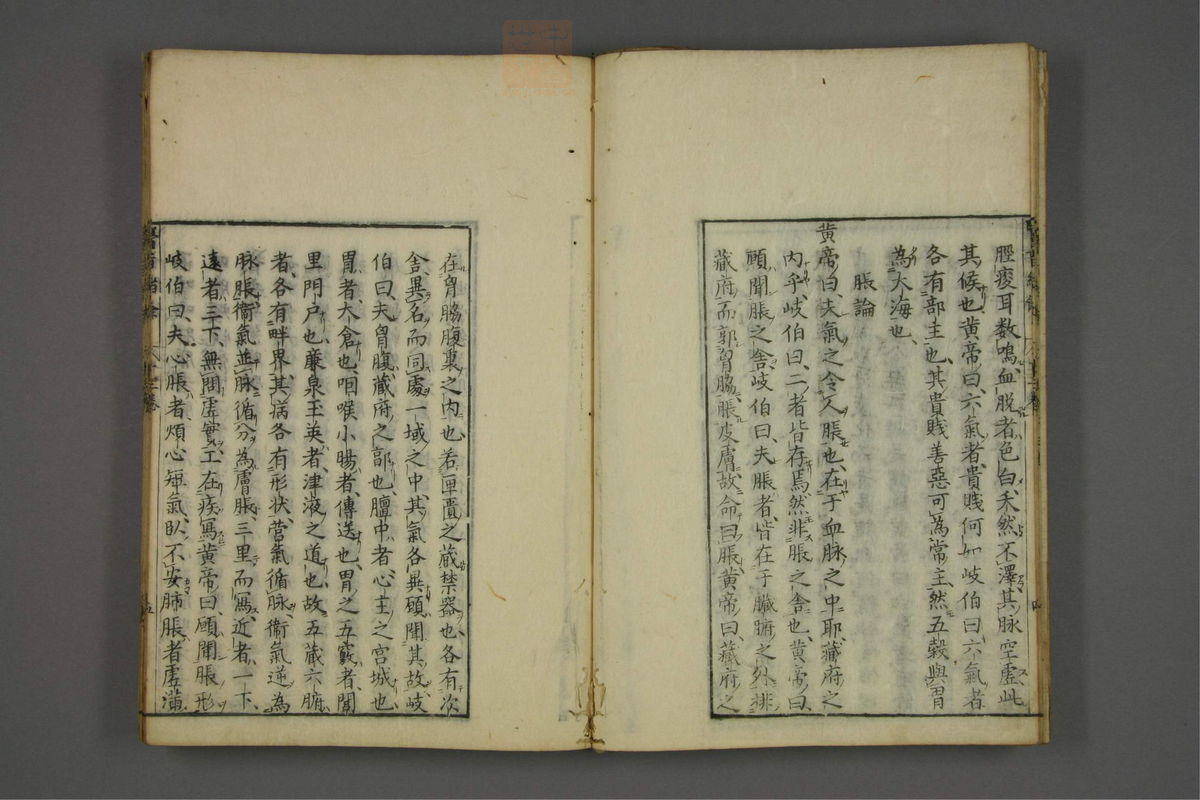 脛痠耳数鳴血脱者色白夭然不澤其脉空虚此
其候也黄帝曰六氣者貴賤何如岐伯曰六氣者
各有部主也其貴賤善惡可為常主然五穀與胃
為大海也
脹論
黄帝曰夫氣之令人脹也在于血脉之中耶藏府之
内乎岐伯曰二者皆存焉然非脹之舎也黄帝曰
願聞脹之舎岐伯曰夫脹者皆在于臓腑之外排
藏府而郭胷脇脹皮膚故命曰脹黄帝曰藏府之
在胷脇腹裏之内也若匣匱之藏禁器也各有次
舎異名而同處一域之中其氣各異願聞其故岐
伯曰夫胷腹藏府之郭也膻中者心主之宮城也
胃者大倉也咽喉小腸者傳送也胃之五竅者閭
里門戸也廉泉玉英者津液之道也故五藏六腑
者各有畔界其病各有形状营氣循脉衞氣逆為
脉脹衞氣並脉循分為膚脹三里而寫近者一下
遠者三下無問虚實工在疾寫黄帝曰願聞脹形
岐伯曰夫心脹者煩心短氣臥不安肺脹者虚満